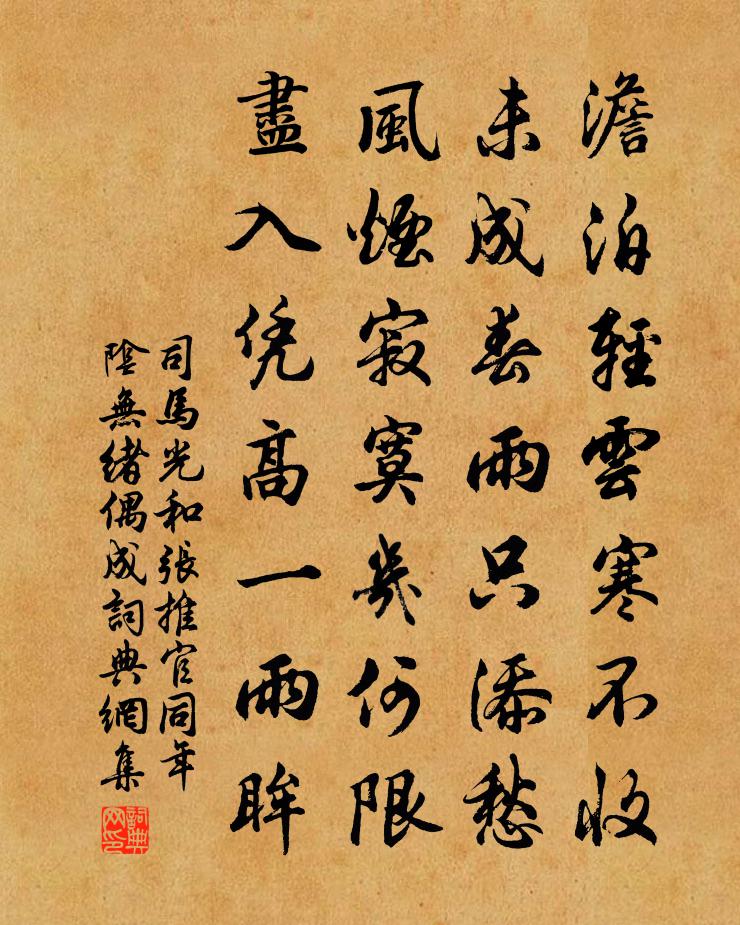 澹泊輕雲寒不收
未成春雨只添愁
風煙寂寞幾何限
盡入凭高一兩眸
司馬光和張推官同年
陰無緒偶成詞典網集
詞典网印